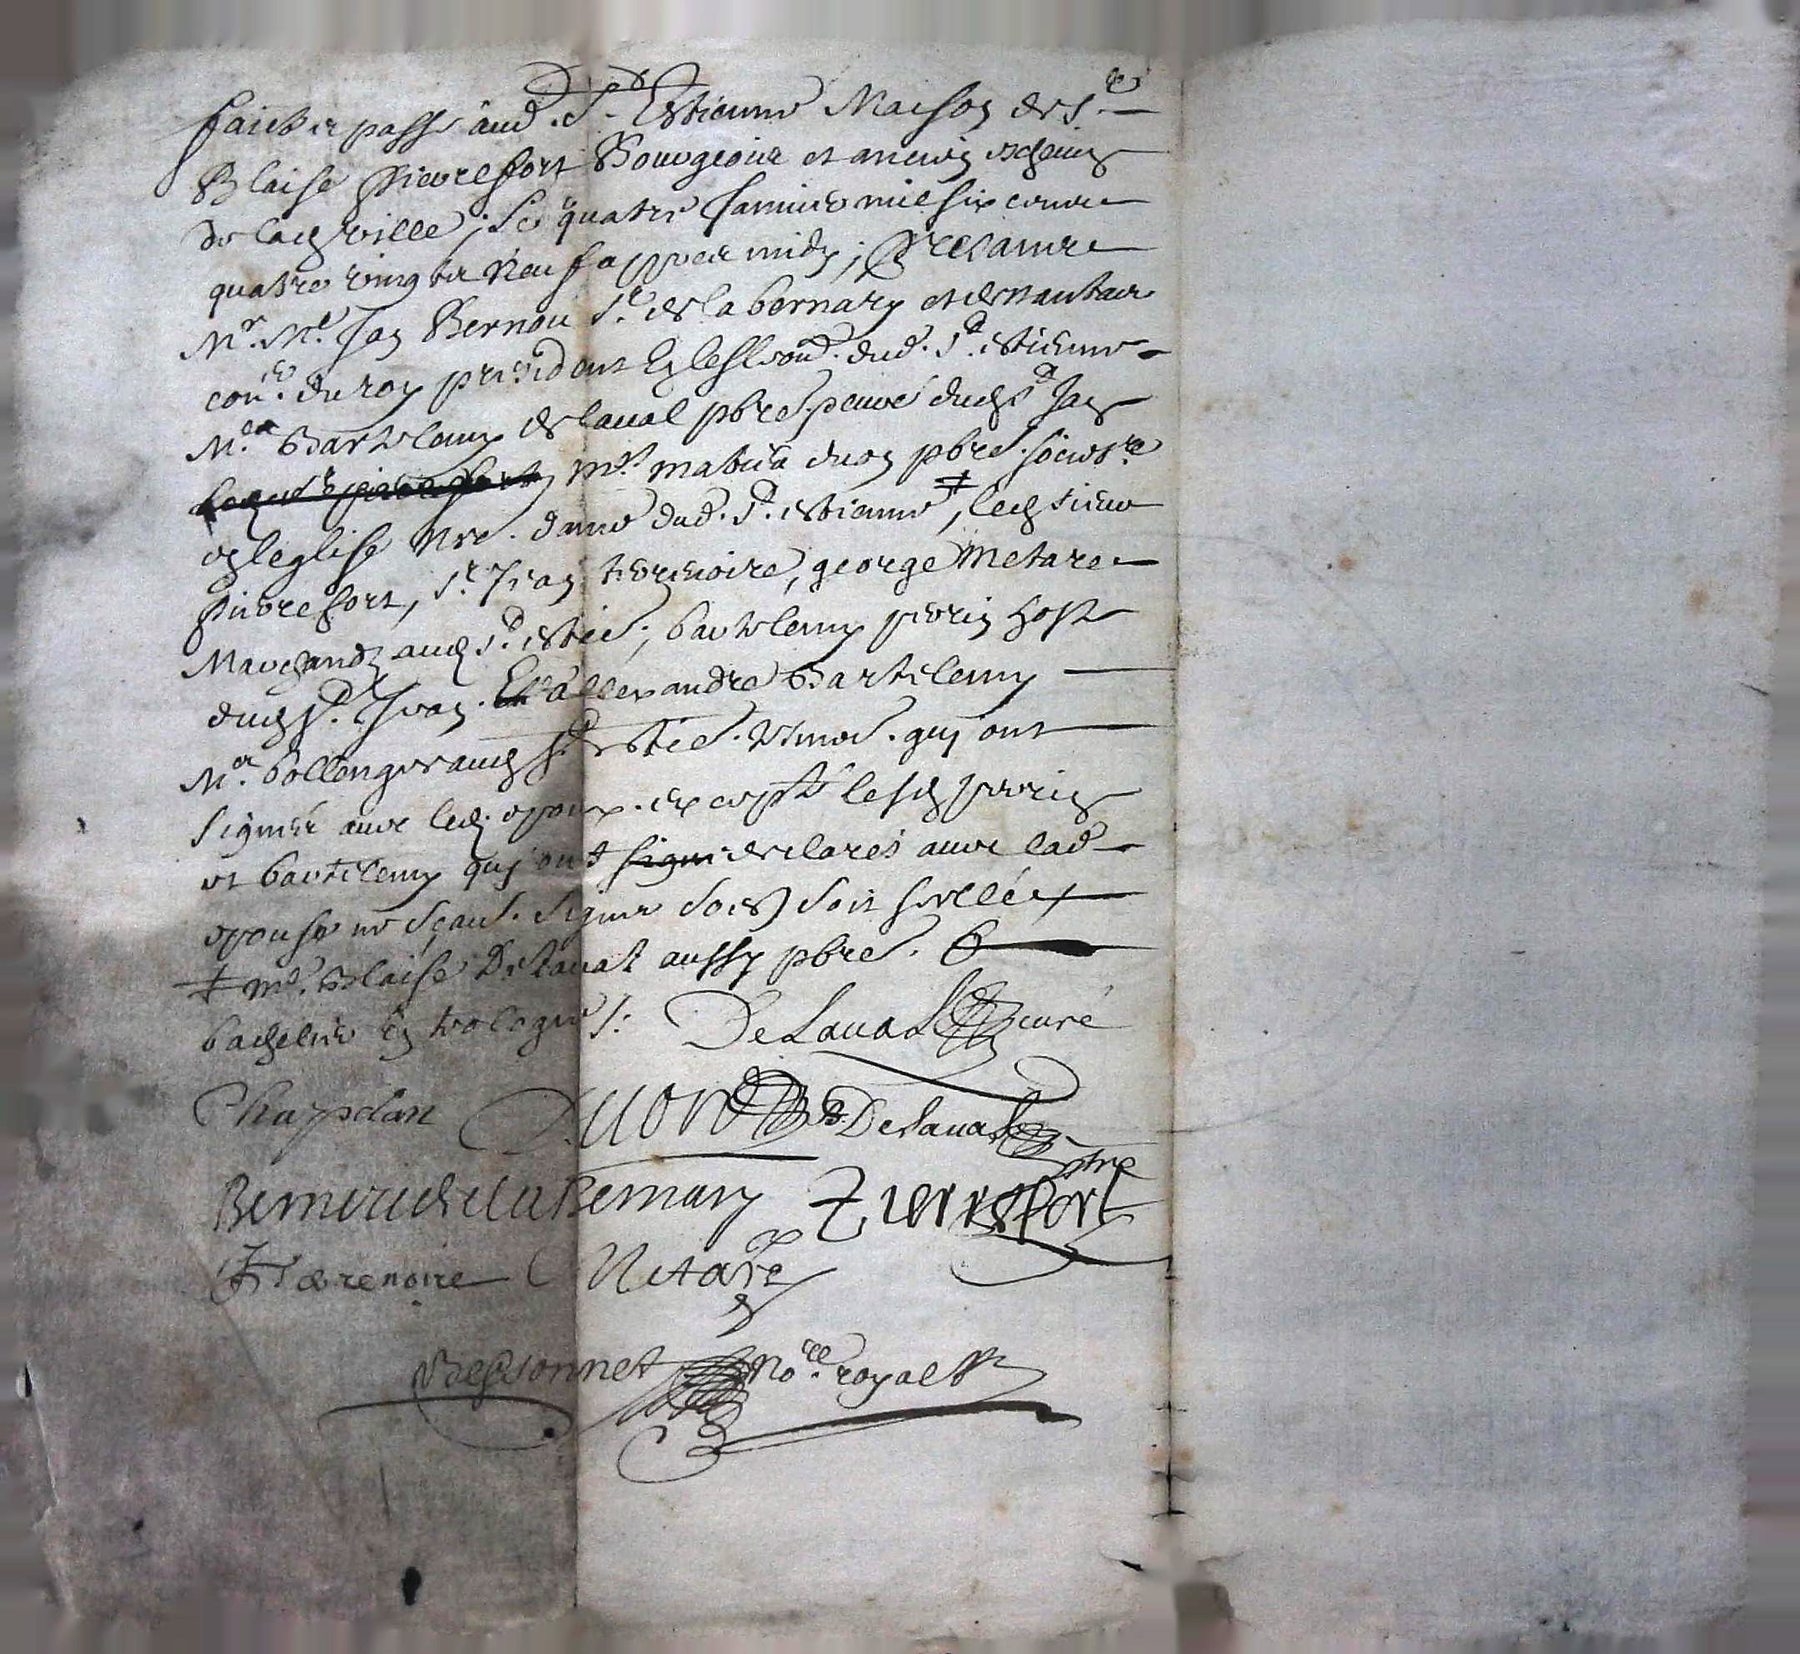 faict et passé aud. St Estienne Maison de Sr
Blaise Pierrefort Bourgeois et ancien eschevin
de lad ville, le quatre Janvier mil six cens
quatre vingts neuf apres midy; Presans
Mr. Me. Jan Bernou Sr. de la bernary et de nantas
conr. du roy president En lesl dud. St. estienne
Mre Bartelemy de laval pbre. curé dud St Jan
Me. pbre. socre.
en leglise Nre. dame dud. St. estienne ‡, led sieur
Pierrefort, Sr. Jean terrenoire, george Metare
Marchandz aud St. estie.; bartelemy perrin hoste
dud St. Jean. Et allexandre Bartelemy
Me. bollenger aud St estie. tmois. quy ont
signés avec led. epoux. excepté lesd perrin
et bartelemy quy ont signé declarés avec lad
epouse ne sçavr. signer soes) soit scellé
‡ me. Blaise Delaval aussy pbre. &
bachelier En teologie /.
DeLaval curé
Chapelan Duon B. Delaval
ptre
Bernou de la Bernary Pierrefort
J terrenoire Metare
Bessonnet Nore. royal